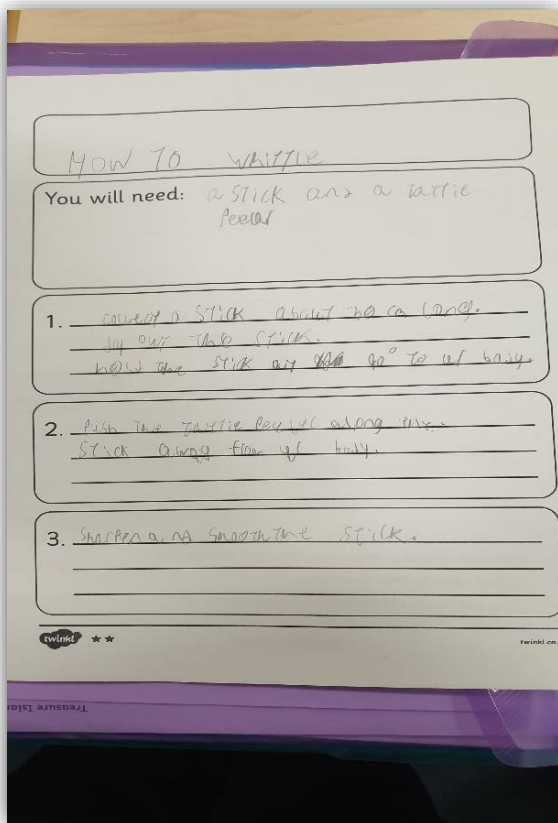 HOW TO whittle
You will need: a stick and a tattie
Peeler
1. a stick about 20 cm long.
out the stick.
the stick at 90° to ur body.
2. Push the tattie Peeler along the
stick away from ur body.
3. Sharpen and smooth the stick.
twinkl
twinkl.co.
Treasure Islan